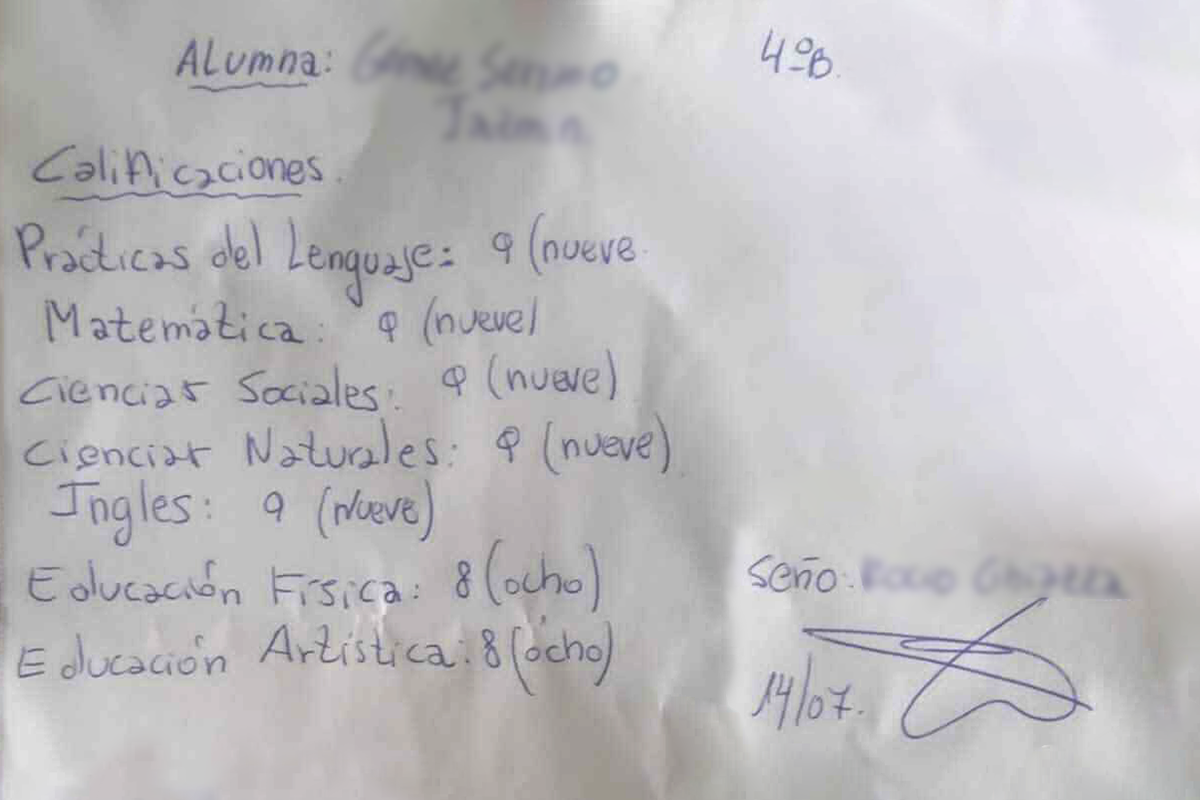 Alumna: 4ºB.
Calificaciones.
Prácticas del Lenguaje: 9 (nueve.
Matemática: 9 (nueve)
Ciencias Sociales: 9 (nueve)
Ciencias Naturales: 9 (nueve)
Ingles: 9 (Nueve)
Educación Física: 8 (ocho)
Educación Artística: 8 (ocho)
Seño:
14/07.